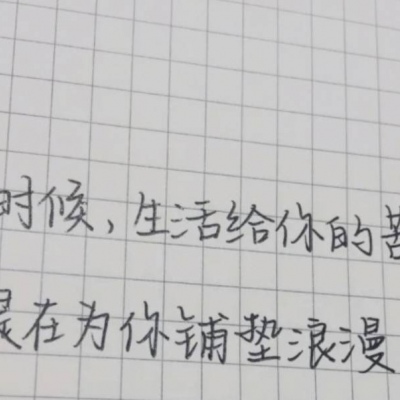 时候，生活给你的苦
是在为你铺垫浪漫